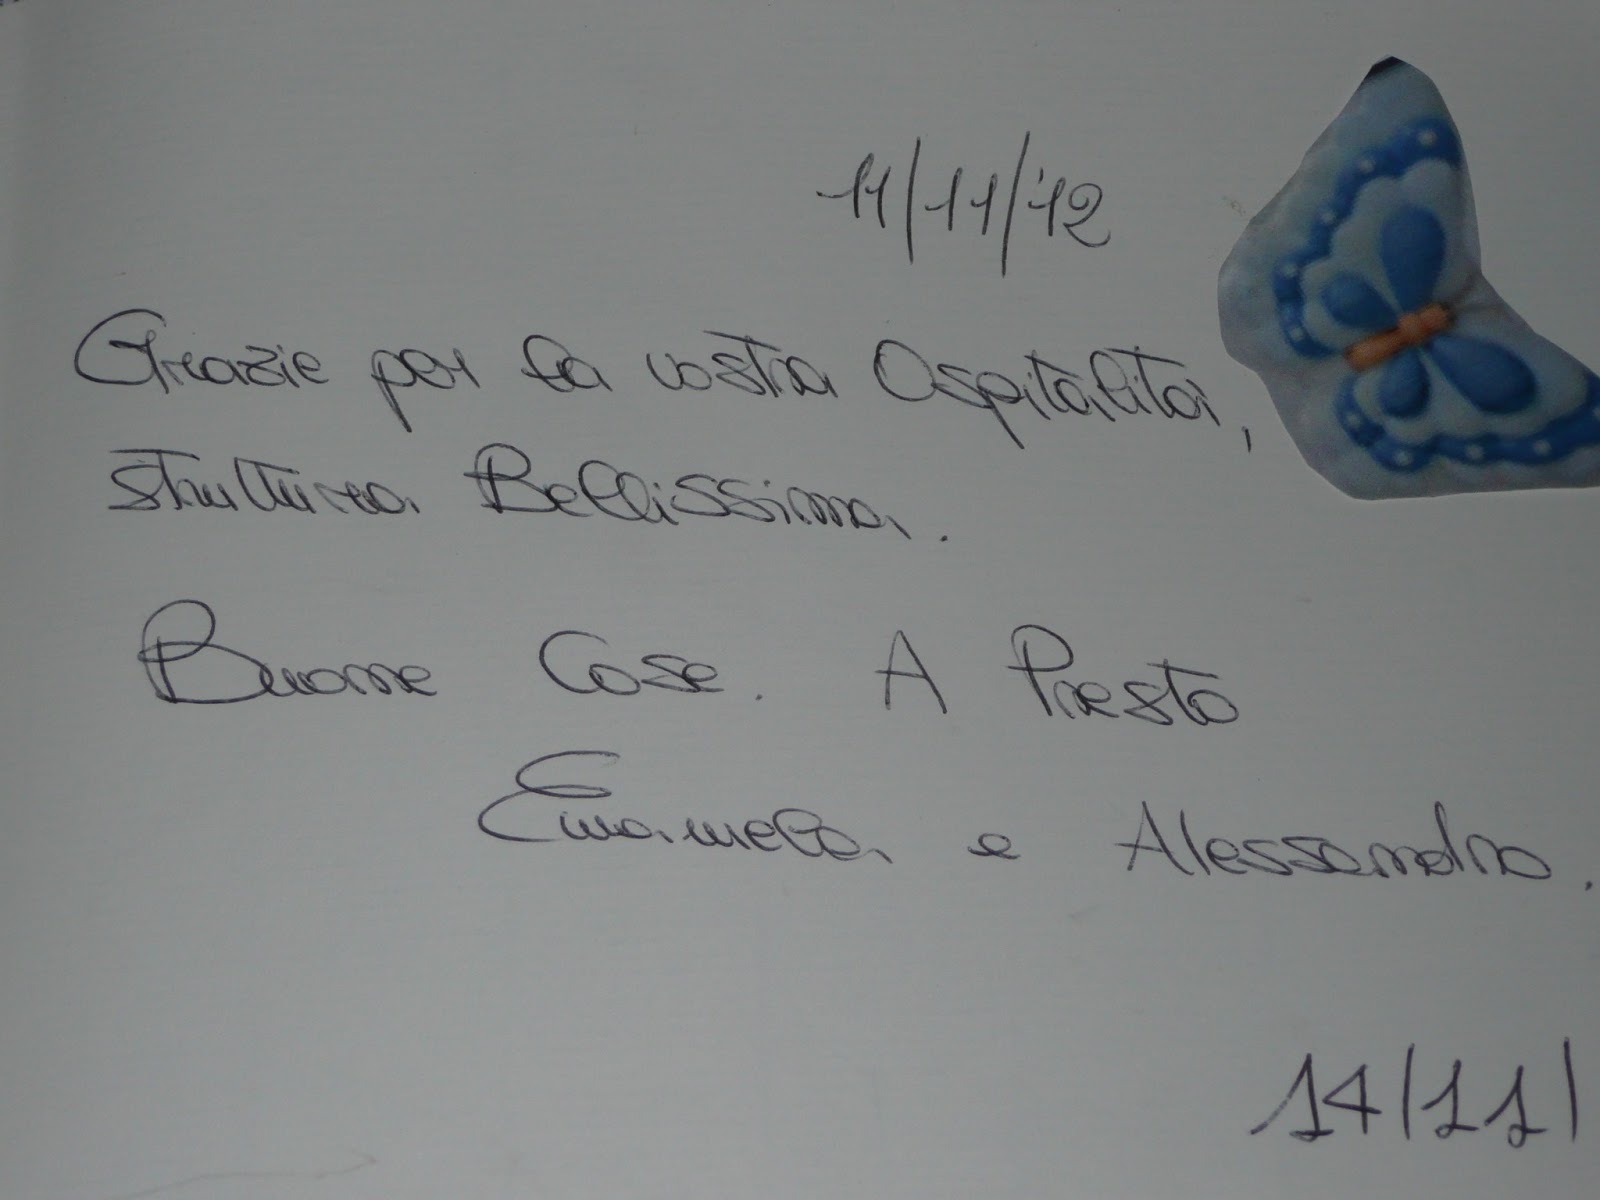 11/11/'12
Grazie per la vostra Ospitalità,
struttura Bellissima.
Buone Cose. A Presto
Emanuela e Alessandro.
14/11/